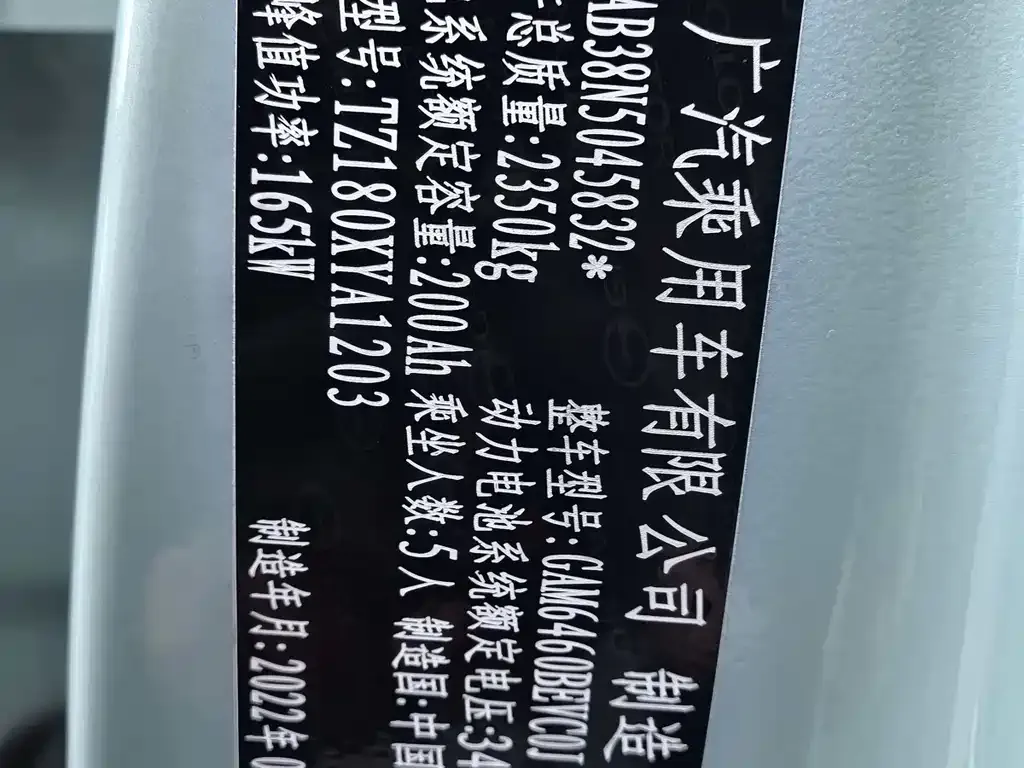 广汽乘用车有限公司 制造
AB38N504582* 整车型号:GAM6460BEVC0J
总质量:2350kg 动力电池系统额定电压:34
系统额定容量:200Ah 乘坐人数:5人 制造国:中国
型号:TZ180XYA1203
峰值功率:165kW 制造年月:2022年0